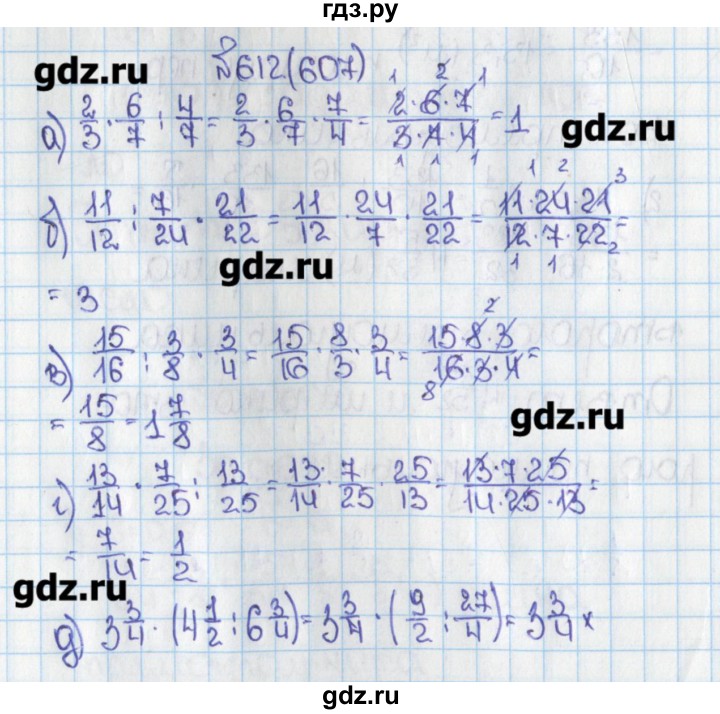 гдз.ру
№612(607)
gdz.ru
1 2 1
а) 2/3 · 6/7 : 4/7 = 2/3 · 6/7 · 7/4 = 2·6·7/3·7·4 = 1
1 1 1
gdz.ru
1 2 3
б) 11/12 : 7/24 · 21/22 = 11/12 · 24/7 · 21/22 = 11·24·21/12·7·22 =
1 1 2
gdz.ru
= 3
2
в) 15/16 : 3/8 · 3/4 = 15/16 · 8/3 · 3/4 = 15·8·3/16·3·4 =
8
= 15/8 = 1 7/8
gdz.ru
г) 13/14 · 7/25 : 13/25 = 13/14 · 7/25 · 25/13 = 13·7·25/14·25·13 =
= 7/14 = 1/2
gdz.ru
д) 3 3/4 · (4 1/2 : 6 3/4) = 3 3/4 · (9/2 : 27/4) = 3 3/4 ×
gdz.ru